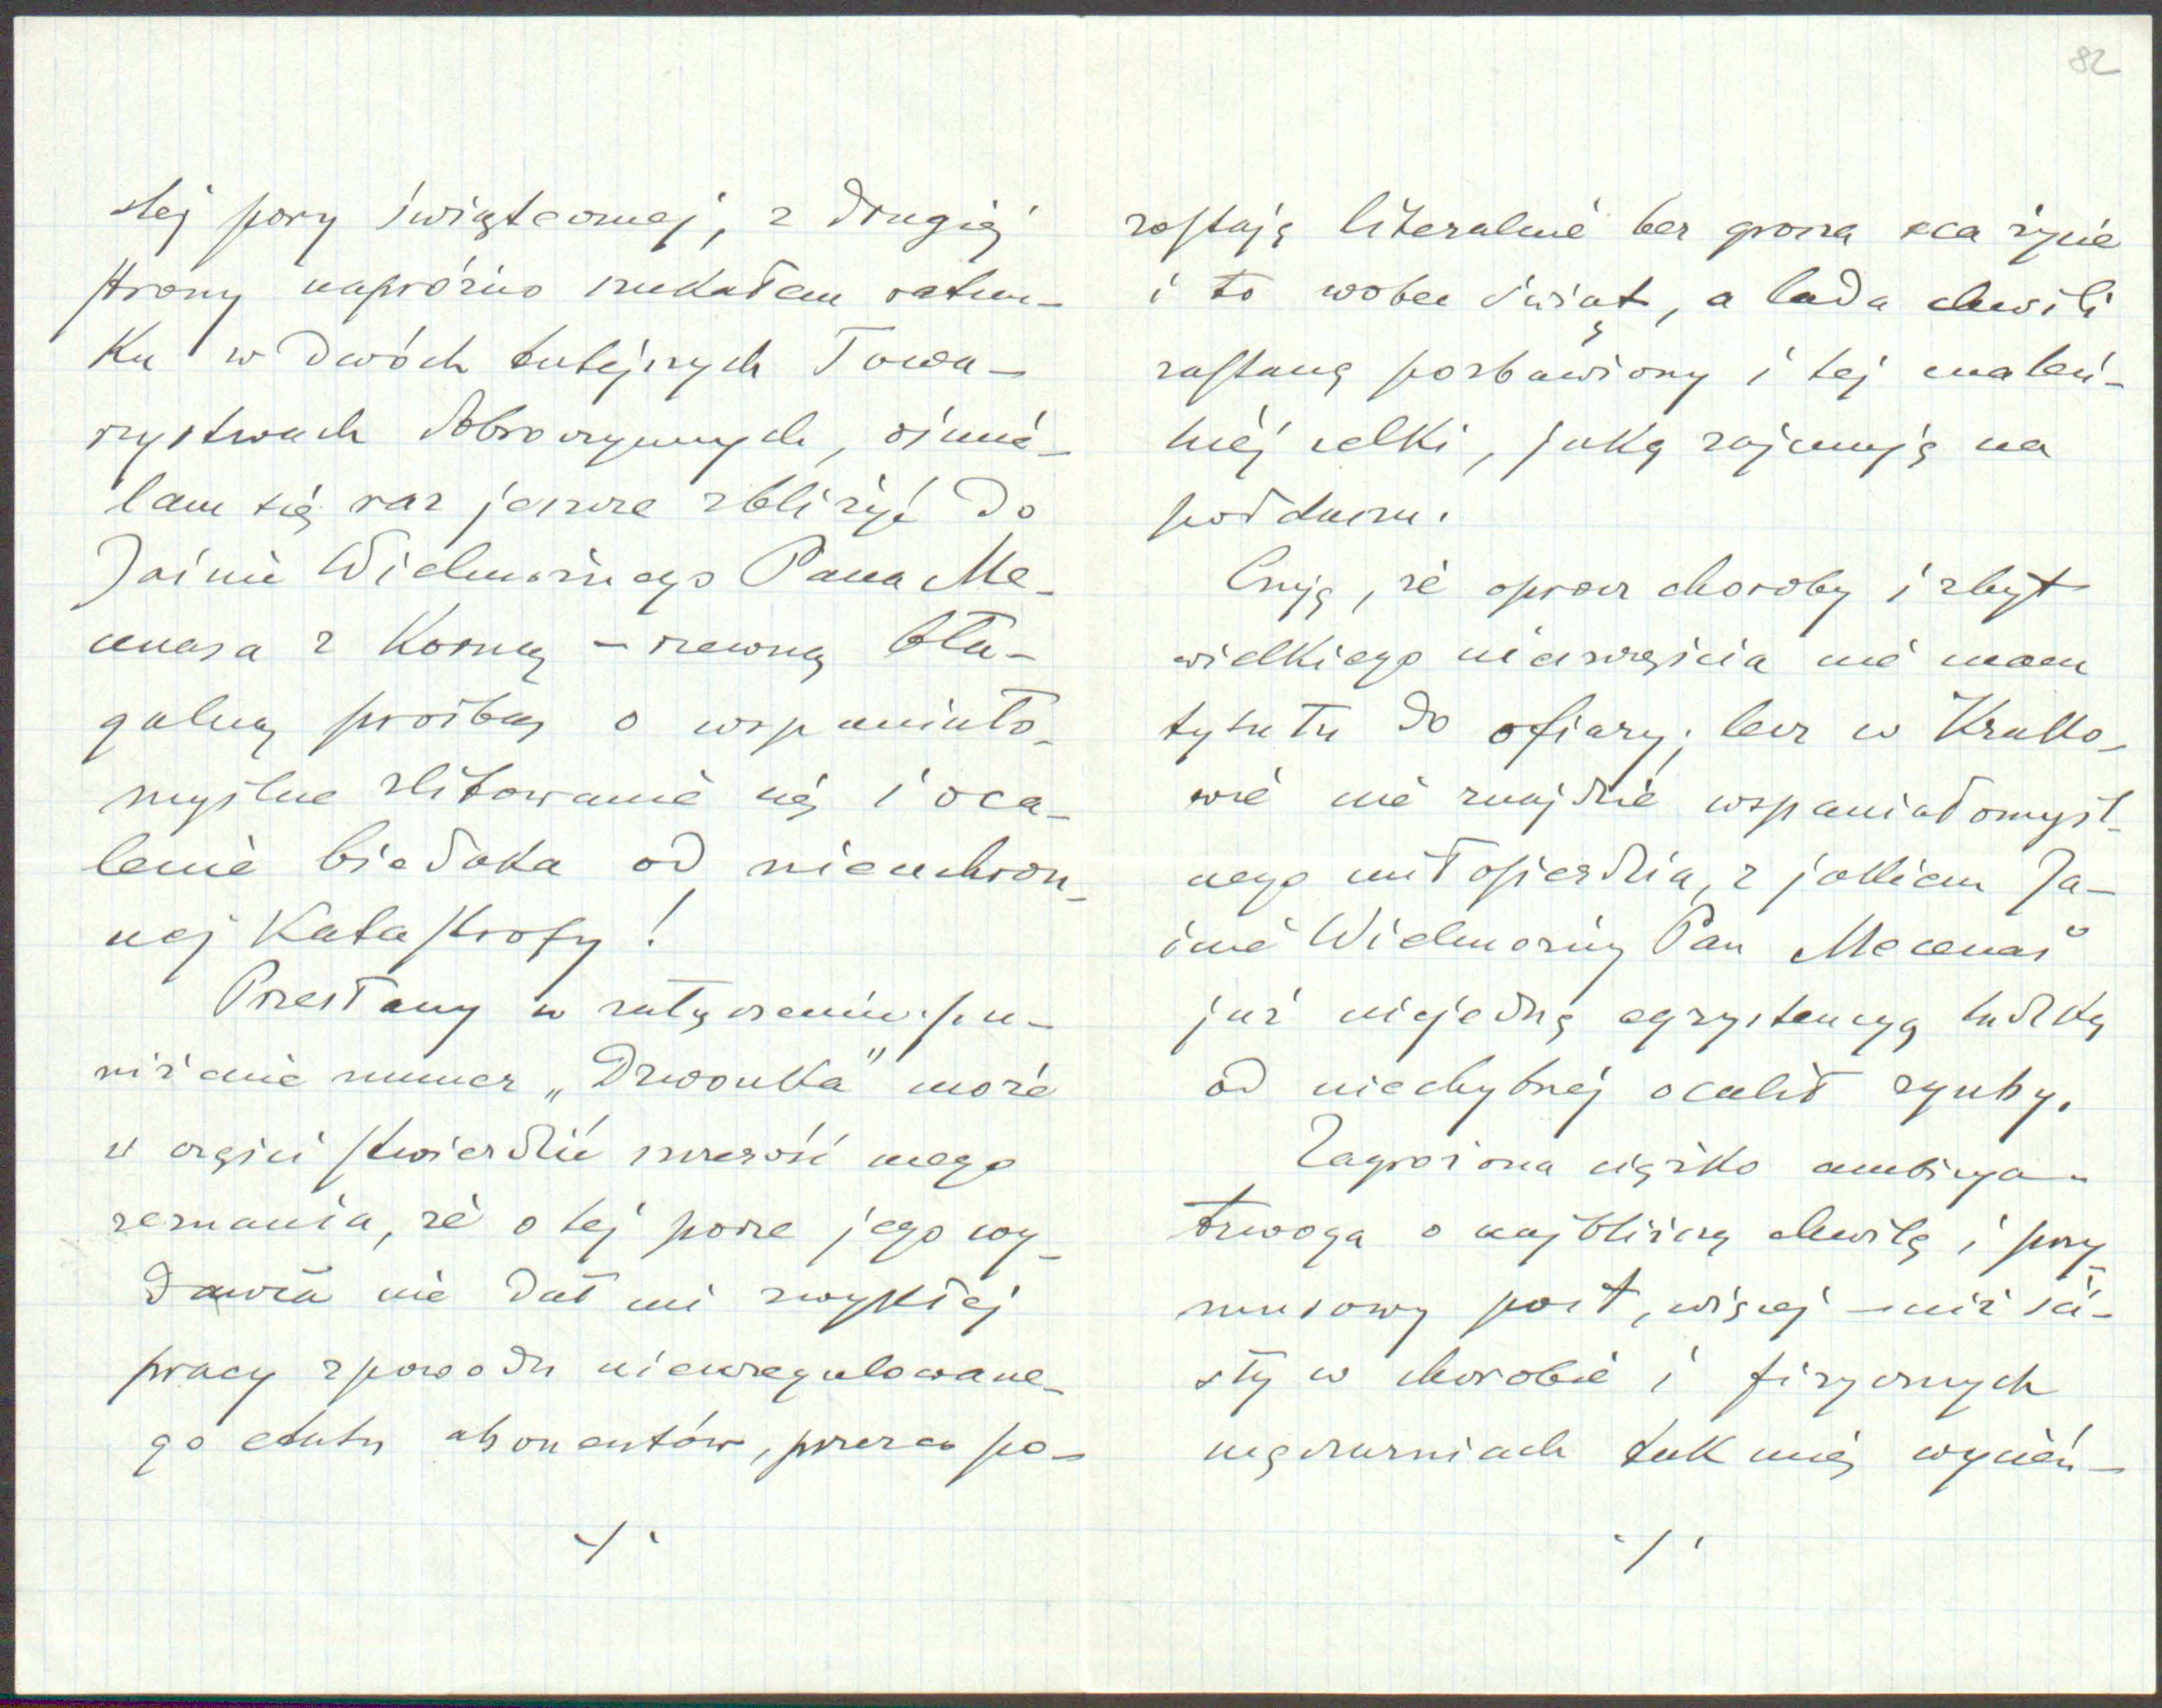 82
stej pory świątecznej, z drugiej
strony napróżno szukałem ratun-
ku w dwóch tutejszych Towa-
rzystwach dobroczynnych, ośmie-
lam się raz jeszcze zbliżyć do
Jaśnie Wielmożnego Pana Me-
cenasa z korną – rzewną bła-
galną prośbą o wspaniało-
myślne zlitowanie się i oca-
lenie biedaka od nieuchron-
nej katastrofy!
Przesłany w załączeniu po u-
niżenie numer „Dzwonka" może
w części stwierdzić szczerość mego
zeznania, że o tej porze jego wy-
dawca nie dał mi zwykłej
pracy z powodu nieuregulowane-
go etatu abonentów, przez co po-
-/-
zostaję literalnie bez grosza na życie
i to wobec świąt, a lada chwili
zostanę pozbawiony i tej maleń-
kiej celki, jaką zajmuję na
poddaszu.
Czuję, że oprócz choroby i zbyt
wielkiego nieszczęścia nie mam
tytułu do ofiary; lecz w Krako-
wie nie znajdzie wspaniałomyśl-
nego miłosierdzia, z jakiem Ja-
śnie Wielmożny Pan Mecenas
już niejedną egzystencyą ludzką
od niechybnej ocalił zguby.
Zagrożona ciężko ambicya-
trwoga o najbliższą chwilę i przy-
musowy post, więcej - niż ści-
sły w chorobie i fizycznych
męczarniach tak mię wycień-
-/-